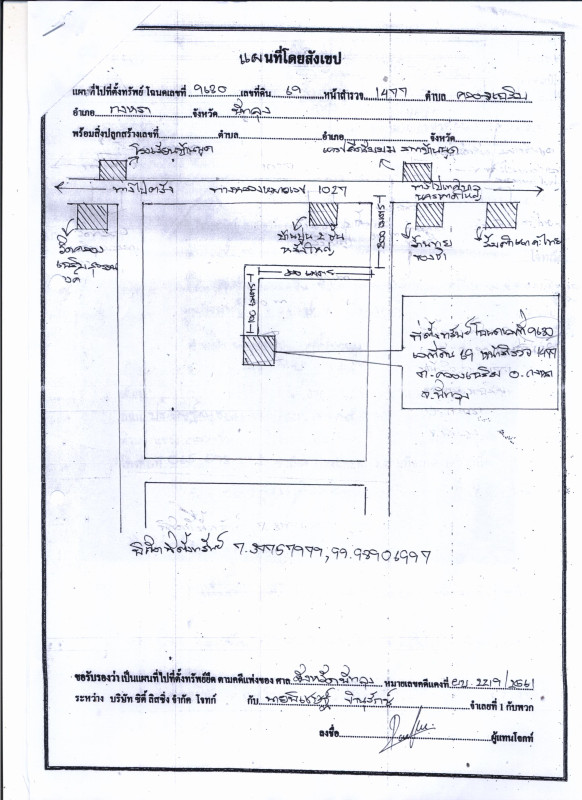 แผนที่โดยสังเขป
แผนที่ไปที่ตั้งทรัพย์ โฉนดเลขที่ 9630 เลขที่ดิน 69 หน้าสำรวจ 1477 ตำบล คลองเฉลิม
อำเภอ กงหรา จังหวัด พัทลุง
พร้อมสิ่งปลูกสร้างเลขที่ ตำบล อำเภอ จังหวัด
ทางไปตรัง ทางหลวงหมายเลข 1027 ทางไป
300 เมตร
บ้านปูน 2 ชั้น
หลังใหญ่
ร้านขาย
ของชำ
วัดคลอง
300 เมตร
100 เมตร
ที่ตั้งทรัพย์ โฉนดเลขที่ 9630
เลขที่ดิน 69 หน้าสำรวจ 1477
ต.คลองเฉลิม อ.กงหรา
จ.พัทลุง
พิกัดที่ตั้งทรัพย์ 7.39757979, 99.98906997
ขอรับรองว่าเป็นแผนที่ไปที่ตั้งทรัพย์ยึด ตามคดีแพ่งของ ศาล จังหวัดพัทลุง หมายเลขคดีแดงที่ ผบ. 2219/2561
ระหว่าง บริษัท ซิตี้ ลิสซิ่ง จำกัด โจทก์ กับ จำเลยที่ 1 กับพวก
ลงชื่อ ผู้แทนโจทก์